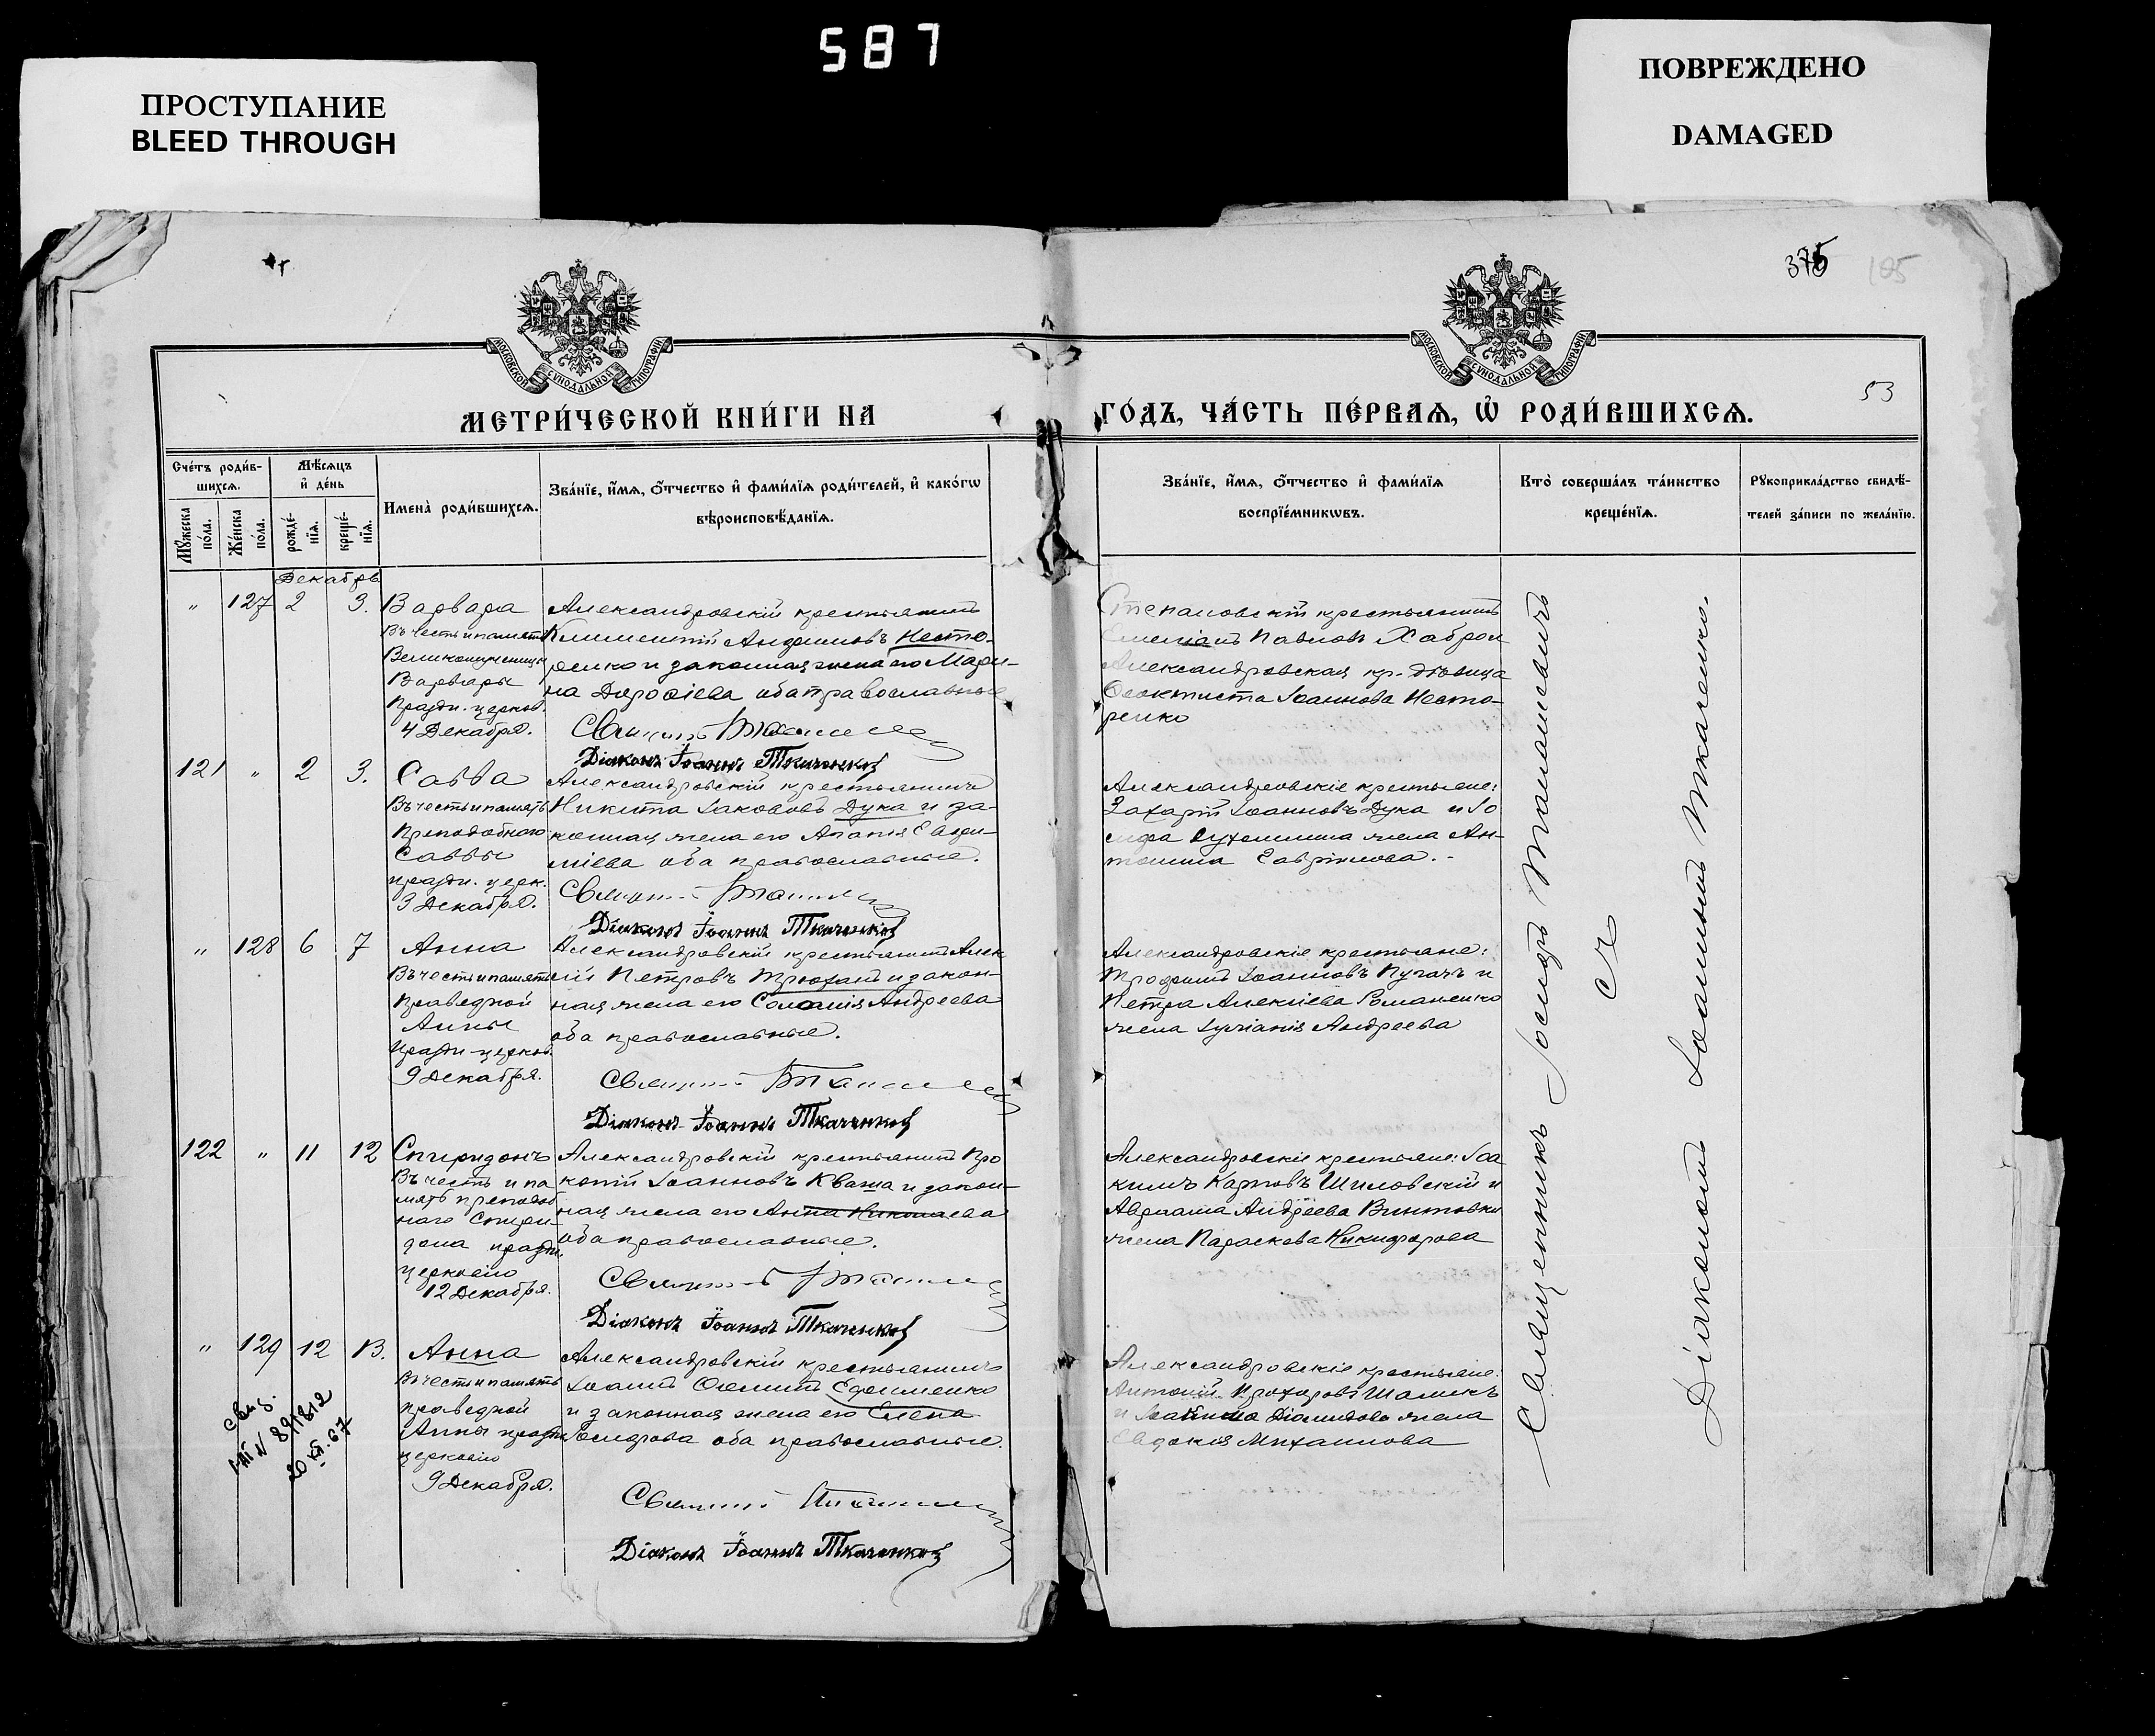 587
ПРОСТУПАНИЕ
BLEED THROUGH
ПОВРЕЖДЕНО
DAMAGED
375
105
53
МОСКОВСКОЙ СѴНОДАЛЬНОЙ ТИПОГРАФІИ
МОСКОВСКОЙ СѴНОДАЛЬНОЙ ТИПОГРАФІИ
МЕТРИ́ЧЕСКОЙ КНИ́ГИ НА
ГО́ДЪ, ЧА́СТЬ ПЕ́РВАѦ, Ѡ҆ РОДИ́ВШИХСѦ.
Сче́тъ роди́в-
шихсѧ.
Мѣ́сѧцъ
и҆ де́нь
Мꙋ́жеска
по́ла.
Же́нска
по́ла.
рожде́-
нїѧ.
креще́-
нїѧ.
Имена̀ роди́вшихсѧ.
Зва́нїе, и҆́мѧ, ѻ҆́тчество и҆ фами́лїѧ роди́телей, и҆ како́гѡ
вѣроисповѣ́данїѧ.
Зва́нїе, и҆́мѧ, ѻ҆́тчество и҆ фами́лїѧ
воспрїе́мникѡвъ.
Кто̀ соверша́лъ та́инство
креще́нїѧ.
Рꙋкоприкла́дство свидѣ́-
телей за́писи по жела́нїю.
Декабрь
" 127 2 3. Варвара
Въ честь и память
Великомученицы
Варвары
Праздн. церков.
4 Декабря.
Александровскій крестьянинъ
Климентій Анфимовъ Несто-
ренко и законная жена его Мари-
на Дорофіева оба православные
Діаконъ Іоаннъ Ткаченко
Степановскій крестьянинъ
Емеліанъ Павловъ
Александровская кр. дѣвица
Феоктиста Іоаннова Несто-
ренко
121 " 2 3. Савва
Въ честь и память
Преподобнаго
Саввы
праздн. церк.
3 Декабря.
Александровскій крестьянинъ
Никита Іакововъ Дука и за-
конная жена его Агапія Евфи-
міева оба православные.
Діаконъ Іоаннъ Ткаченко
Александровскіе крестьяне:
Захарій Іоанновъ Дука и Іо
сифа жена Ан-
тонина Гавріилова.
" 128 6 7 Анна
Въ честь и память
Праведной
Анны
Праздн. церков.
9 Декабря.
Александровскій крестьянинъ Алек
сій Петровъ Трюхан и закон-
ная жена его Соломія Андреева
оба православные.
Діаконъ Іоаннъ Ткаченко
Александровскіе крестьяне:
Трофимъ Іоанновъ Пугачъ и
Петра Алексіева Романенко
жена Іуліанія Андреева
122 " 11 12 Спиридонъ
Въ честь и па
мять преподоб
наго Спири-
дона праздн.
церковію
12 Декабря.
Александровскій крестьянинъ Про
копій Іоанновъ Кваша и закон-
ная жена его Анна Николаева
оба православные.
Діаконъ Іоаннъ Ткаченко
Александровскіе крестьяне: Іоа
кимъ Карповъ Шиловскій и
Авраама Андреева Винтовки
жена Параскева Никифорова
" 129 12 13. Анна
Въ честь и память
праведной
Анны праздн
церковію
9 Декабря.
Александровскій крестьянинъ
Іоаннъ Ефименко
и законная жена его Елена
Іосифова оба православные.
Діаконъ Іоаннъ Ткаченко
Александровскіе крестьяне:
Антоній Прохоровъ
и Діомидова жена
Евдокія Михаилова
Священникъ Іосифъ
съ
Діакономъ Іоанномъ Ткаченко.